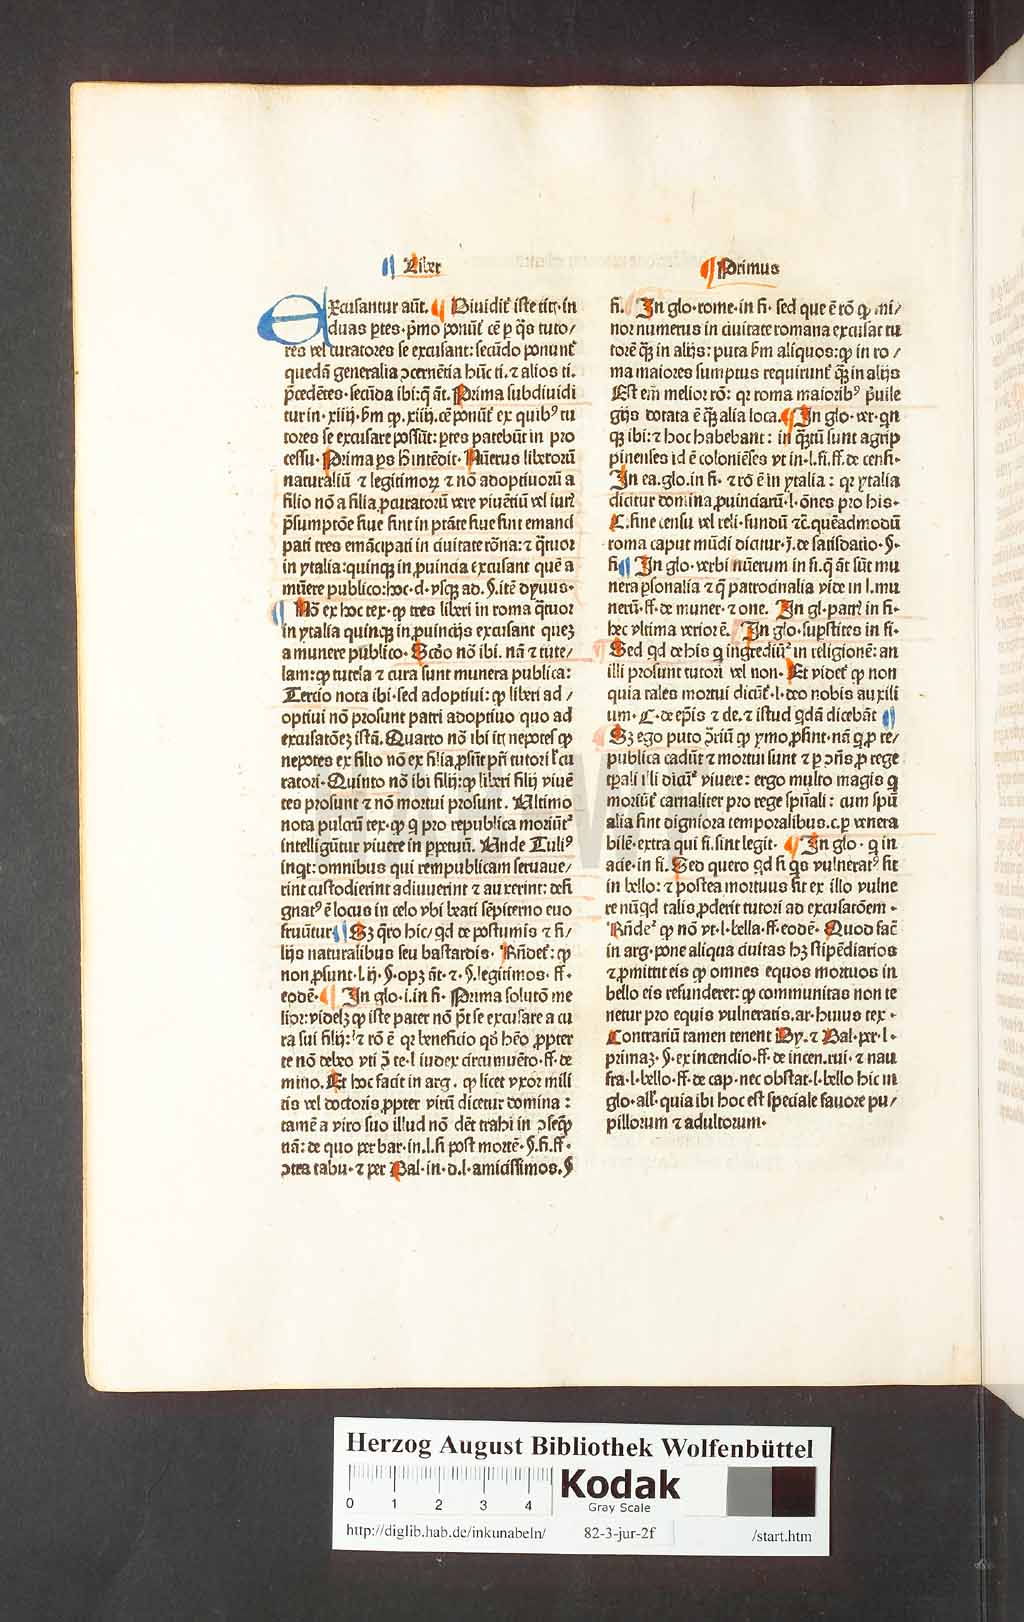 Liber
Primus
Excusantur aūt. ¶ Diuidit᷑ iste titꝭ in
duas ꝑtes · p̄mo ponūt᷑ cē ꝑ q̄s tuto⸗
res vel curatores se excusant: secūdo ponunt᷑
quedā generalia ↄcernētia hūc ti. ⁊ alios ti.
p̄cedētes · secūda ibi: q̄ āt. Prima subdiuidi
tur in · xiiij · ꝑm ꝙ · xiiij. cē ponūt᷑ ex quibꝰ tu
tores se excusare possūt: ꝑtes patebūt in pro
cessu. Prima ꝑs ħ intēdit · Nūerus liberorū
naturaliū ⁊ legitimoꝝ ⁊ nō adoptiuorū a
filio nō a filia ꝓcuratorū vere viuētiū vel iur
p̄sumptōe siue sint in ptāte siue sint emanci
pati tres emācipati in ciuitate rōna: ⁊ q̄tuor
in ytalia: quinqꝫ in ꝓuincia excusant quē a
mūere publico: hoc · d · vsqꝫ ad · §. itē dyuus ·
¶ Nō ex hoc tex · ꝙ tres liberi in roma q̄tuor
in ytalia quinqꝫ in ꝓuincijs excusant quēꝫ
a munere publico · Scđo nō ibi. nā ⁊ tute⸗
lam: ꝙ tutela ⁊ cura sunt munera publica:
Tercio nota ibi · sed adoptiui: ꝙ liberi ad⸗
optiui nō prosunt patri adoptiuo quo ad
excusatōeꝫ istā. Quarto nō ibi itꝭ nepotes ꝙ
nepotes ex filio nō ex filia ꝓsūt p̄ri tutori ł cu
ratori · Quinto nō ibi filij: ꝙ liberi filij viuē
tes prosunt ⁊ nō mortui prosunt. Vltimo
nota pulcrū tex · ꝙ q̄ pro republica moriūt᷑
intelligūtur viuere in ꝑpetuū. Vnde Tuliꝰ
inqt: omnibus qui rempublicam seruaue⸗
rint custodierint adiuuerint ⁊ auxerint: desi
gnatꝰ ē locus in celo vbi beati sēpiterno euo
fruūtur ¶ Sꝫ q̄ro hic / qd de postumis ⁊ fi⸗
lijs naturalibus seu bastardis. Rn̄det᷑: ꝙ
non ꝓsunt · l. ij · §. opꝫ āt. ⁊ · §. legitimos. ff.
eodē · ¶ In glo · i. in fi · Prima solutō me
lior: videlꝫ ꝙ iste pater nō p̄t se excusare a cu
ra sui filij: ⁊ rō ē qꝛ beneficio qď hēo ꝓpter
te nō debeo vti ↄ̄ te · l iudex circumuēto · ff. de
mino. Et hoc facit in arg. ꝙ licet vxor mili
tis vel doctoris ꝓpter virū dicetur domina:
tamē a viro suo illud nō dēt trahi in ↄseq̄
tiā: de quo per bar · in. l. si post mortē · §. fi. ff ·
ↄtra tabu · ⁊ per Bal · in · d. l. amicissimos. §
fi. In glo · rome · in fi · sed que ē rō ꝙ mi⸗
nor numerus in ciuitate romana excusat tu
torē qꝫ in alijs: puta ꝑm aliquos: ꝙ in ro⸗
ma maiores sumptus requirunt᷑ qꝫ in alijs
Est em̄ melior rō: qꝛ roma maioribꝰ p̄uile
gijs dotata ē qꝫ alia loca. ¶ In glo · ver · qn̄
qꝫ ibi: ⁊ hoc habebant: in q̄tū sunt agrip
pinenses id ē coloniēses vt in · l. fi. ff. de censi ·
In ea. glo. in fi · ⁊ rō ē in ytalia: qꝛ ytalia
dicitur domina ꝓuinciarū · l · ōnes pro his ·
C. sine censu vel reli · fundū ⁊č. quēadmodū
roma caput mūdi dicitur · j. de satisdatio · §.
fi ¶ In glo · verbi nūerum in fi. q̄ āt sūt mu
nera ꝑsonalia ⁊ q̄ patrocinalia vide in l. mu
nerū · ff. de muner · ⁊ one. In gl · patri in fi ·
hec vltima verior ē. In glo · suꝑstites in fi ·
Sed qd de his q ingrediūt᷑ in religionē: an
illi prosunt tutori vel non · Et videt᷑ ꝙ non
quia tales mortui dicūt᷑ · l · deo nobis auxili
um · C · de ep̄is ⁊ de. ⁊ istud qdā dicebāt ¶
Sꝫ ego puto ↄ̄riū ꝙ ymo ꝓsint · nā q ꝓ re⸗
publica cadūt ⁊ mortui sunt ⁊ ꝑ ↄn̄s ꝓ rege
tꝑali illi dicūt᷑ viuere: ergo multo magis q
moriūt᷑ carnaliter pro rege spūali: cum spū
alia sint digniora temporalibus. c. ꝑ venera
bilē · extra qui fi. sint legit · ¶ In glo · q in
acie · in fi. Sed quero qd si q̄s vulneratꝰ sit
in bello: ⁊ postea mortuus sit ex illo vulne
re nūqd talis ꝓderit tutori ad excusatōem ·
Rn̄det᷑ ꝙ nō vt · l · bella · ff. eodē · Quod fac̄
in arg · pone aliqua ciuitas hꝫ stipēdiarios
⁊ ꝓmittit eis ꝙ omnes equos mortuos in
bello eis refunderet: ꝙ communitas non te
netur pro equis vulneratis. ar · huius tex ·
Contrariū tamen tenent Dy. ⁊ Bal · per · l ·
primaꝫ · §. ex incendio · ff. de incen. rui. ⁊ nau
fra · l · bello · ff. de cap · nec obstat · l · bello hic in
glo · all᷑ · quia ibi hoc est speciale fauore pu⸗
pillorum ⁊ adultorum ·
Herzog August Bibliothek Wolfenbüttel
0 1 2 3 4
Kodak
Gray Scale
http://diglib.hab.de/inkunabeln/ 82-3-jur-2f /start.htm